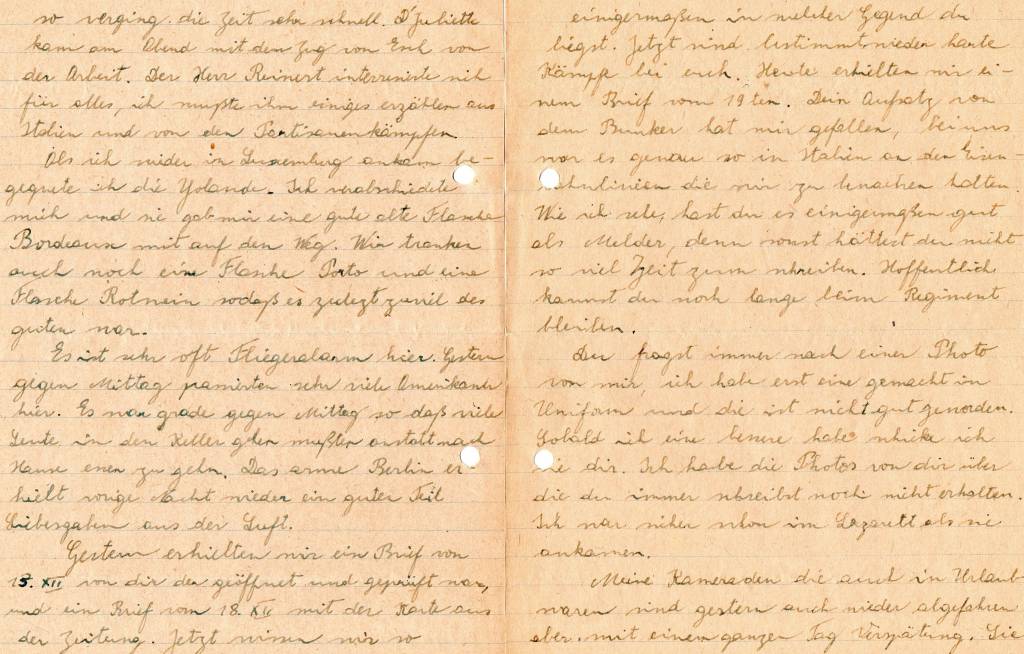 so verging die Zeit sehr schnell. D'Juliette
kam am Abend mit dem Zug von Esch von
der Arbeit. Der Herr Reinert interresirte sich
für alles, ich mußte ihm einiges erzählen aus
Italien und von den Partisanenkämpfen.
Als ich wider in Luxemburg ankam be-
gegnete ich die Yolande. Ich verabschiedete
mich und sie gab mir eine gute alte Flasche
Bordeaux mit auf den Weg. Wir tranken
auch noch eine Flasche Porto und eine
Flasche Rotwein sodaß es zulezt zuviel des
guten war.
Es ist sehr oft Fliegeralarm hier. Gestern
gegen Mittag passierten sehr viele Amerikaner
hier. Es war grade gegen Mittag so daß viele
Leute in den Keller gehen mußten anstatt nach
Hause enen zu gehn. Das arme Berlin er-
hielt vorige Nacht wieder ein guter Teil
Liebesgaben aus der Luft.
Gestern erhielten wir ein Brief von
13. XII von dir der geöffnet und geprüft war,
und ein Brief vom 18. XII mit der Karte aus
der Zeitung. Jetzt wissen wir so
einigermaßen in welcher Gegend du
liegst. Jetzt sind bestimmt wieder harte
Kämpfe bei euch. Heute erhielten wir ei-
nem Brief vom 19ten. Dein Aufsatz von
dem Bunker hat mir gefallen, bei uns
war es genau so in Italien an den Eisen-
bahnlinien die wir zu bewachen hatten.
Wie ich sehe, hast du es einigermaßen gut
als Melder, denn sonst hättest du nicht
so viel Zeit zum schreiben. Hoffentlich
kannst du noch lange beim Regiment
bleiben.
Du fragst immer nach einer Photo
von mir, ich habe erst eine gemacht in
Uniform und die ist nicht gut geworden.
Sobald ich eine bessere habe schicke ich
sie dir. Ich habe die Photos von dir über
die du immer schreibst noch nicht erhalten.
Ich war sicher schon im Lazarett als sie
ankamen.
Meine Kameraden die auch in Urlaub
waren sind gestern auch wieder abgefahren
aber mit einem ganzen Tag Verspätung. Sie